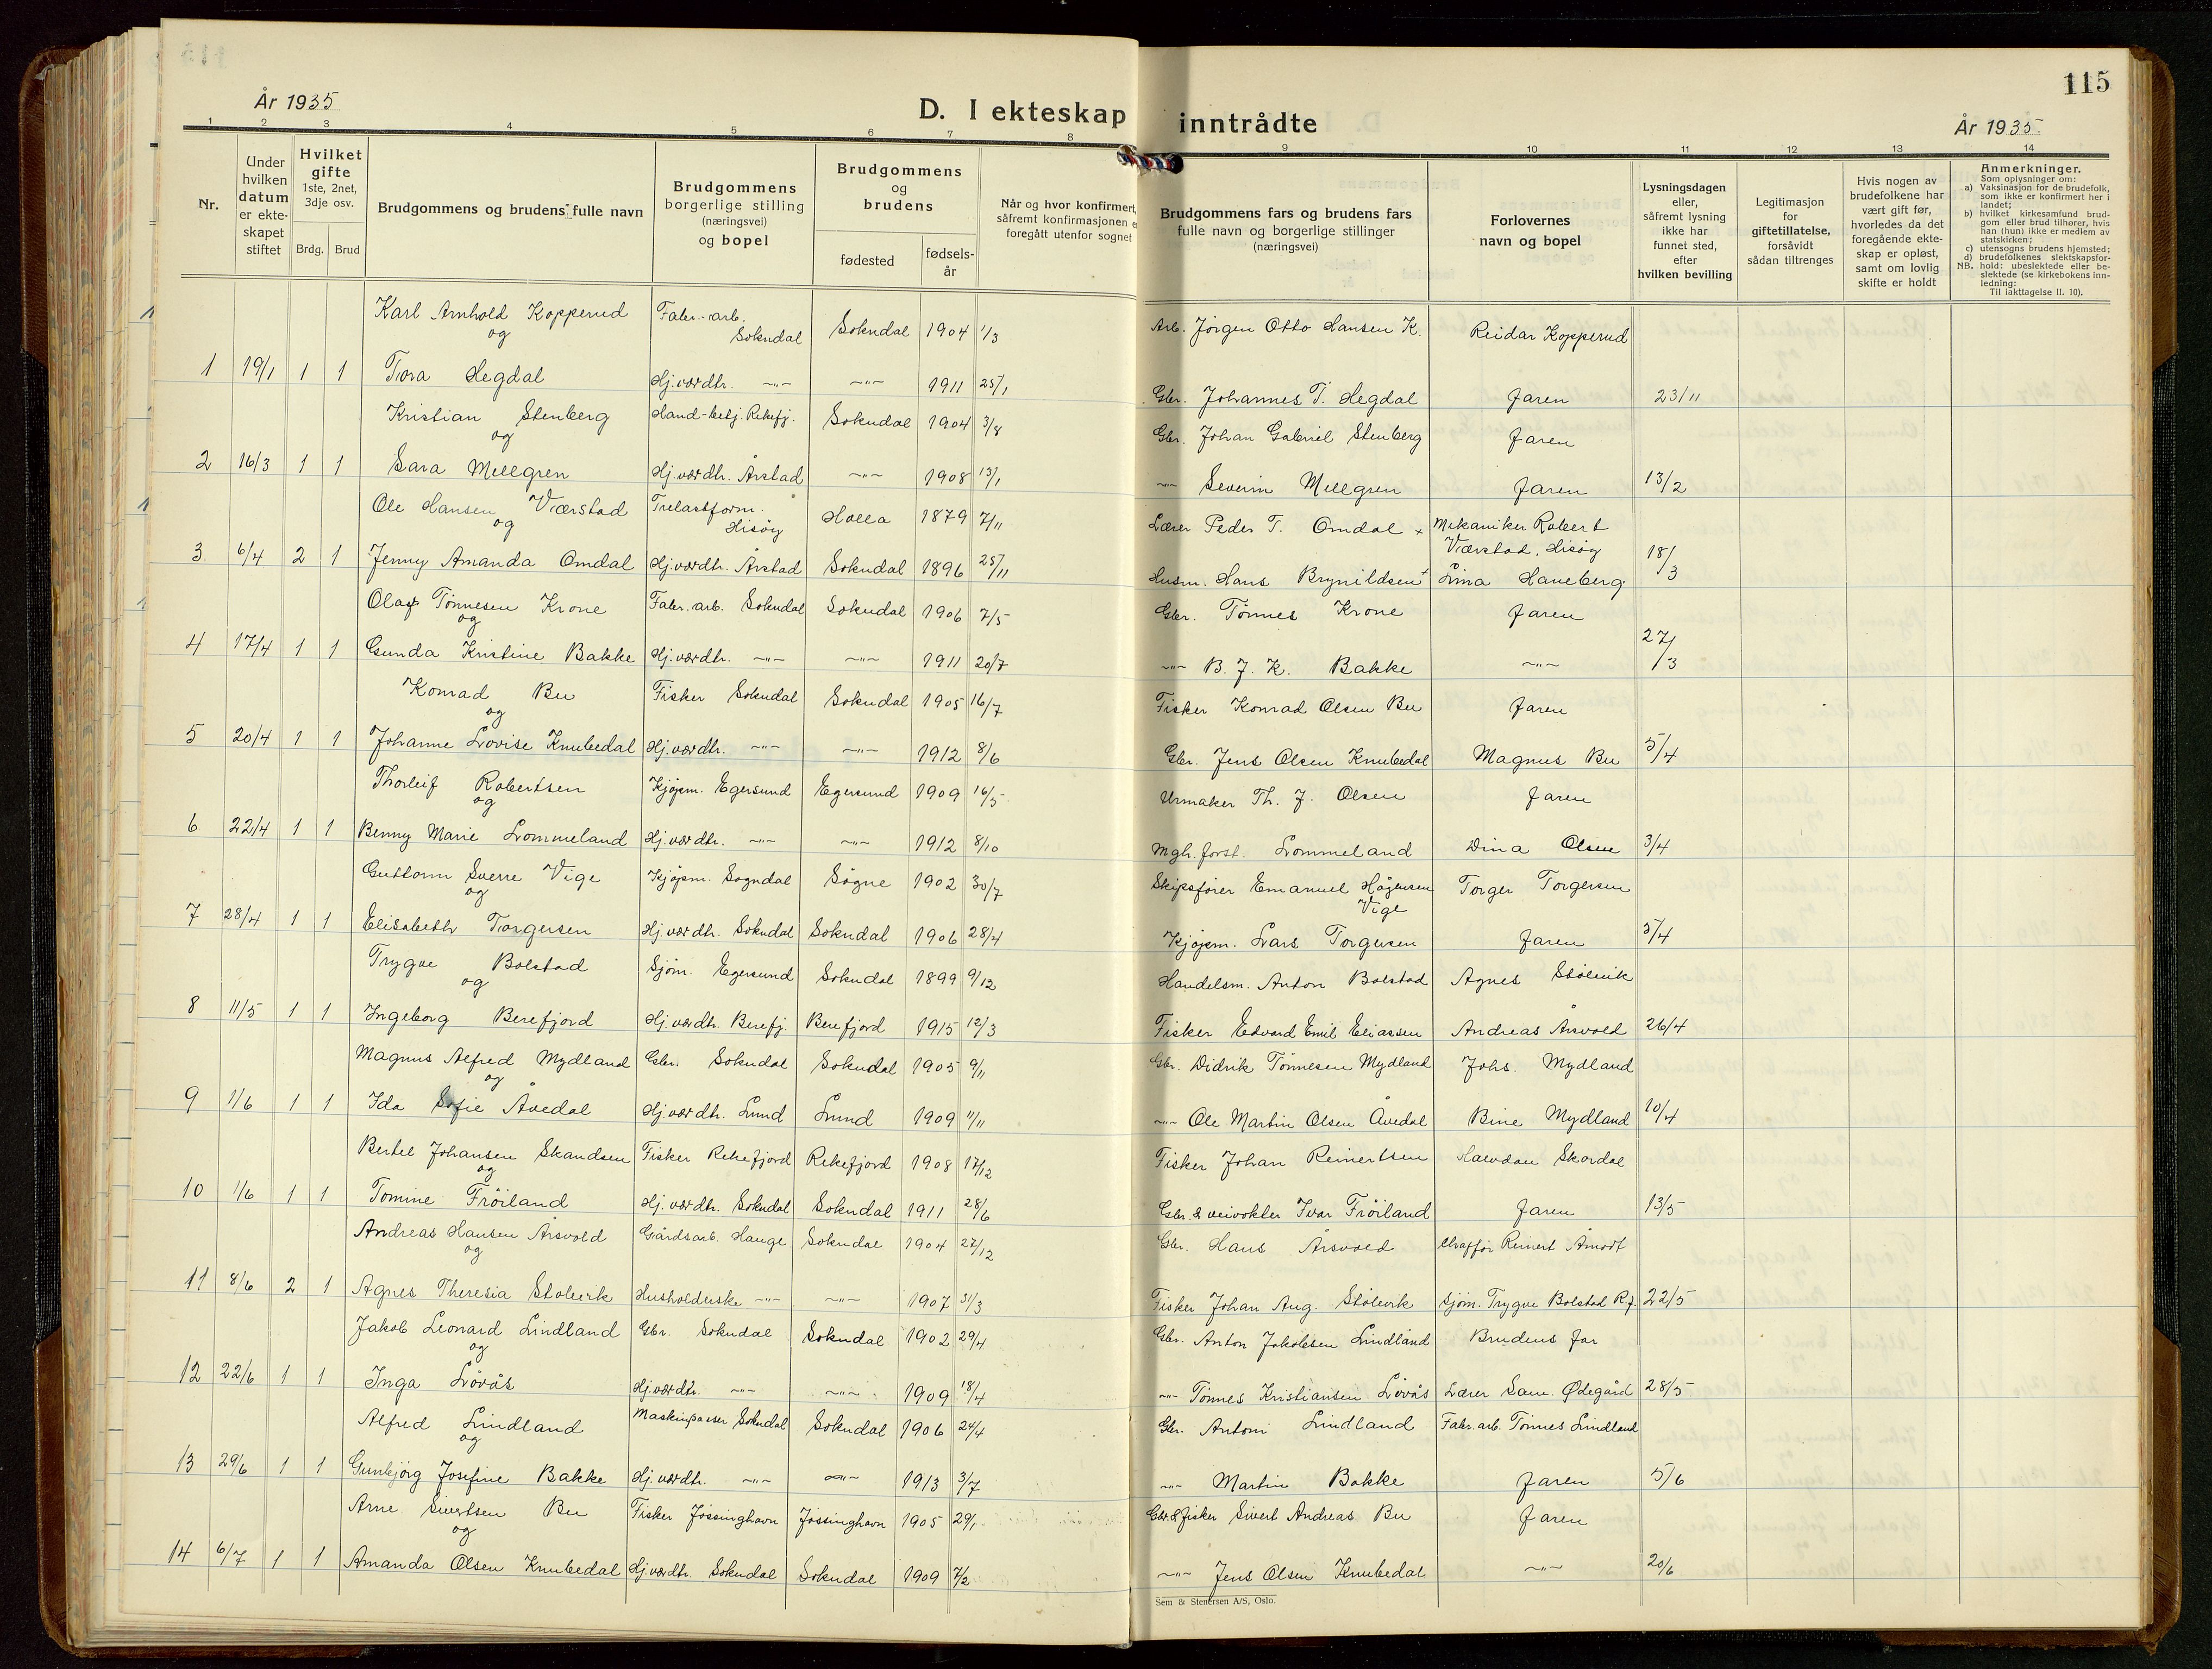 115
År 1935
D. I ekteskap inntrådte
År 1935.
1 2 3 4 5 6 7 8 9 10 11 12 13 14
Nr.
Under hvilken datum er ekte-skapet stiftet
Hvilket gifte 1ste, 2net, 3dje osv.
Brdg. Brud
Brudgommens og brudens fulle navn
Brudgommens borgerlige stilling (næringsvei) og bopel
Brudgommens og brudens
fødested
fødsels-år
Når og hvor konfirmert, såfremt konfirmasjonen er foregått utenfor sognet
Brudgommens fars og brudens fars fulle navn og borgerlige stillinger (næringsvei)
Forlovernes navn og bopel
Lysningsdagen eller, såfremt lysning ikke har funnet sted, efter hvilken bevilling
Legitimasjon for giftetillatelse, forsåvidt sådan tiltrenges
Hvis nogen av brudefolkene har vært gift før, hvorledes da det foregående ekte-skap er opløst, samt om lovlig skifte er holdt
Anmerkninger.
Som oplysninger om:
a) Vaksinasjon for de brudefolk, som ikke er konfirmert her i landet;
b) hvilket kirkesamfund brud-gom eller brud tilhører, hvis han (hun) ikke er medlem av statskirken;
c) utensogns brudens hjemsted;
d) brudefolkenes slektskapsfor-hold: ubeslektede eller be-slektede (se kirkebokens inn-ledning:
NB.
Til iakttagelse II. 10).
Karl Arnhold Kopperud Fabr.-arb. Sokndal Sokndal 1904 1/3 Arb. Jørgen Otto Hansen K. Reidar Kopperud
og
1 19/1 1 1 Tora Hegdal Hj.værdtr. -"- -"- 1911 25/1 Gbr. Johannes T. Hegdal Faren 23/11
Kristian Stenberg Hand-betj. Rekefj. Sokndal 1904 3/8 Gbr. Johan Gabriel Stenberg Faren
og
2 16/3 1 1 Sara Mellgren Hj.værdtr. Årstad -"- 1908 13/1 -"- Severin Mellgren Faren 13/2
Ole Hansen Værstad Trelastform. Hisøy Holla 1879 7/11 Lærer Peder T. Omdal x Mekaniker Robert Værstad, Hisøy
og
3 6/4 2 1 Jenny Amanda Omdal Hj.værdtr. Årstad Sokndal 1896 25/11 Husm. Hans Brynildsen + Lina Haneberg 18/3
Olaf Tønnesen Krone Fabr. arb. Sokndal Sokndal 1906 7/5 Gbr. Tønnes Krone Faren
og
4 17/4 1 1 Gunda Kristine Bakke Hj.værdtr. -"- -"- 1911 20/7 -"- B. J. K. Bakke -"- 27/3
Konrad Bu Fisker Sokndal Sokndal 1905 16/7 Fisker Konrad Olsen Bu Faren
og
5 20/4 1 1 Johanne Lovise Knubedal Hj.værdtr. -"- -"- 1912 8/6 Gbr. Jens Olsen Knubedal Magnus Bu 5/4
Thorleif Robertsen Kjøpm. Egersund Egersund 1909 16/5 Urmaker Th. J. Olsen Faren
og
6 22/4 1 1 Benny Marie Lommeland Hj.værdtr. -"- -"- 1912 8/10 Mgh. forst. Lommeland Dina Olsen 3/4
Guttorm Sverre Vige Kjøpm. Sogndal Søgne 1902 30/7 Skipsfører Emanuel Hågensen Vige Torger Torgersen
og
7 28/4 1 1 Elisabeth Torgersen Hj.værdtr. Sokndal Sokndal 1906 28/4 Kjøpm. Lars Torgersen Faren 5/4
Trygve Bolstad Sjøm. Egersund Sokndal 1899 9/12 Handelsm. Anton Bolstad Agnes Stølevik
og
8 11/5 1 1 Ingeborg Berefjord Hj.værdtr. Berefj. Berefjord 1915 12/3 Fisker Edvard Emil Eliassen Andreas Årsvold 26/4
Magnus Alfred Mydland Gbr. Sokndal Sokndal 1905 9/11 Gbr. Didrik Tønnesen Mydland Johs. Mydland
og
9 1/6 1 1 Ida Sofie Åvedal Hj.værdtr. Lund Lund 1909 1/11 -"- Ole Martin Olsen Åvedal Bine Mydland 10/4
Bertel Johansen Skandsen Fisker Rekefjord Rekefjord 1908 17/12 Fisker Johan Reinertsen Halvdan Skordal
og
10 1/6 1 1 Tomine Frøiland Hj.værdtr. Sokndal Sokndal 1911 28/6 Gbr. & veivokter Ivar Frøiland Faren 13/5
Andreas Hansen Årsvold Gårdsarb. Hauge Sokndal 1904 27/12 Gbr. Hans Årsvold Chaffør Reinert Åmodt
og
11 8/6 2 1 Agnes Theresia Stølevik Husholderske -"- -"- 1907 31/3 Fisker Johan Aug. Stølevik Sjøm. Trygve Bolstad R.j. 22/5
Jakob Leonard Lindland Gbr. Sokndal Sokndal 1902 29/4 Gbr. Anton Jakobsen Lindland Brudens far
og
12 22/6 1 1 Inga Løvås Hj.værdtr. -"- -"- 1909 18/4 -"- Tønnes Kristiansen Løvås Lærer Sam. Ødegård 28/5
Alfred Lindland Maskinpasser Sokndal Sokndal 1906 24/4 Gbr. Antoni Lindland Fabr. arb. Tønnes Lindland
og
13 29/6 1 1 Gunbjørg Josefine Bakke Hj.værdtr. -"- -"- 1913 3/7 -"- Martin Bakke Faren 5/6
Arne Sivertsen Bu Fisker Jøssinghavn Jøssinghavn 1905 29/1 Gbr. & fisker Sivert Andreas Bu Faren
og
14 6/7 1 1 Amanda Olsen Knubedal Hj.værdtr. Sokndal Sokndal 1909 7/2 -"- Jens Olsen Knubedal -"- 20/6
Sem & Stenersen A/S, Oslo.